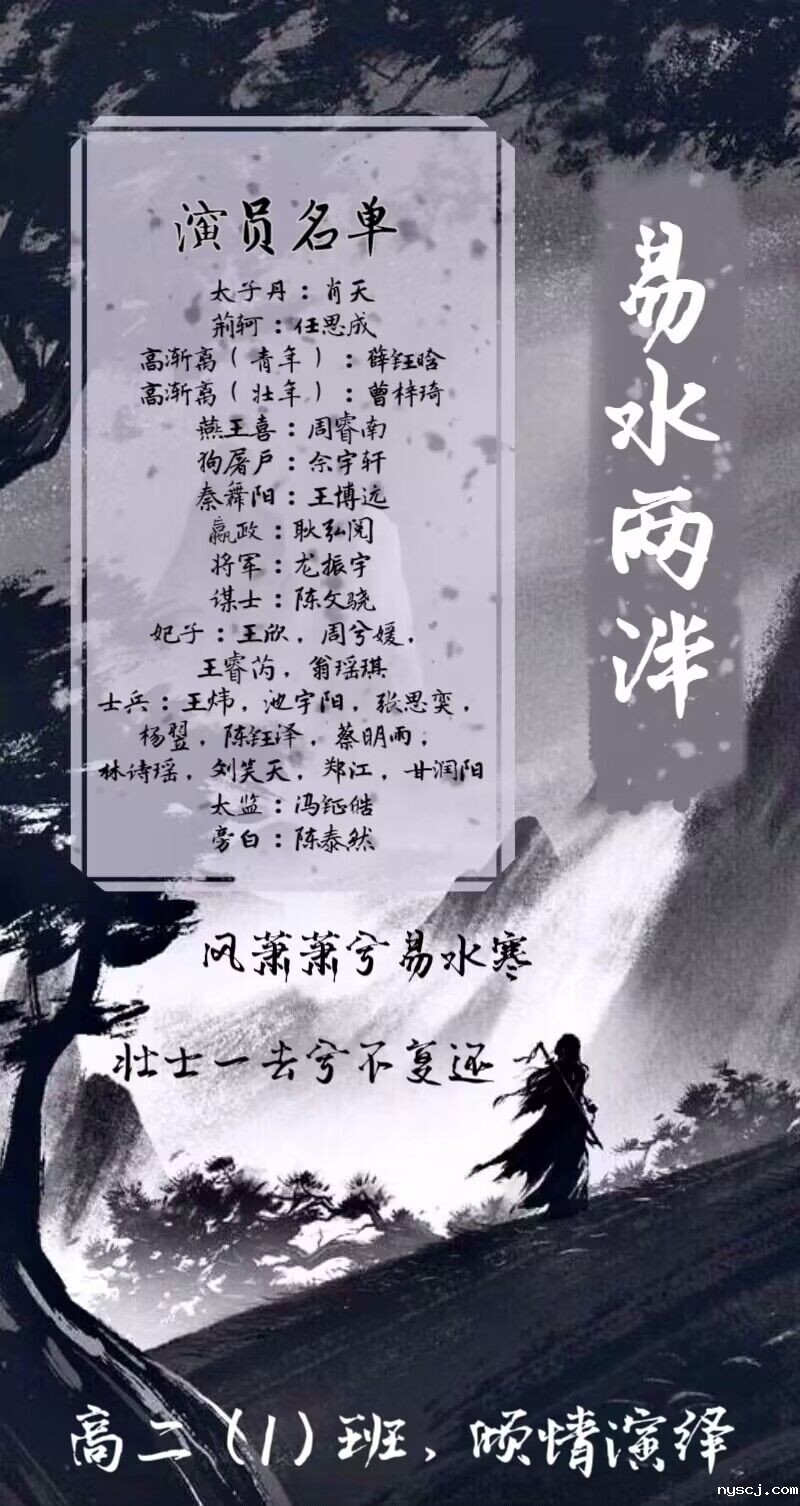 易水两泮
演员名单
太子丹：肖天
荆轲：任思成
高渐离（青年）：薛钰晗
高渐离（壮年）：曾梓琦
燕王喜：周睿南
狗屠户：佘宇轩
秦舞阳：王博远
嬴政：耿弘阅
将军：龙振宇
谋士：陈文骁
妃子：王欣，周兮媛，
王睿芮，翁瑶琪
士兵：王炜，池宇阳，张思奕，
杨翌，陈钰泽，蔡明雨，
林诗瑶，刘笑天，郑江，甘润阳
太监：冯钲皓
旁白：陈泰然
风萧萧兮易水寒
壮士一去兮不复还
高二（1）班，倾情演绎
nyscj.com